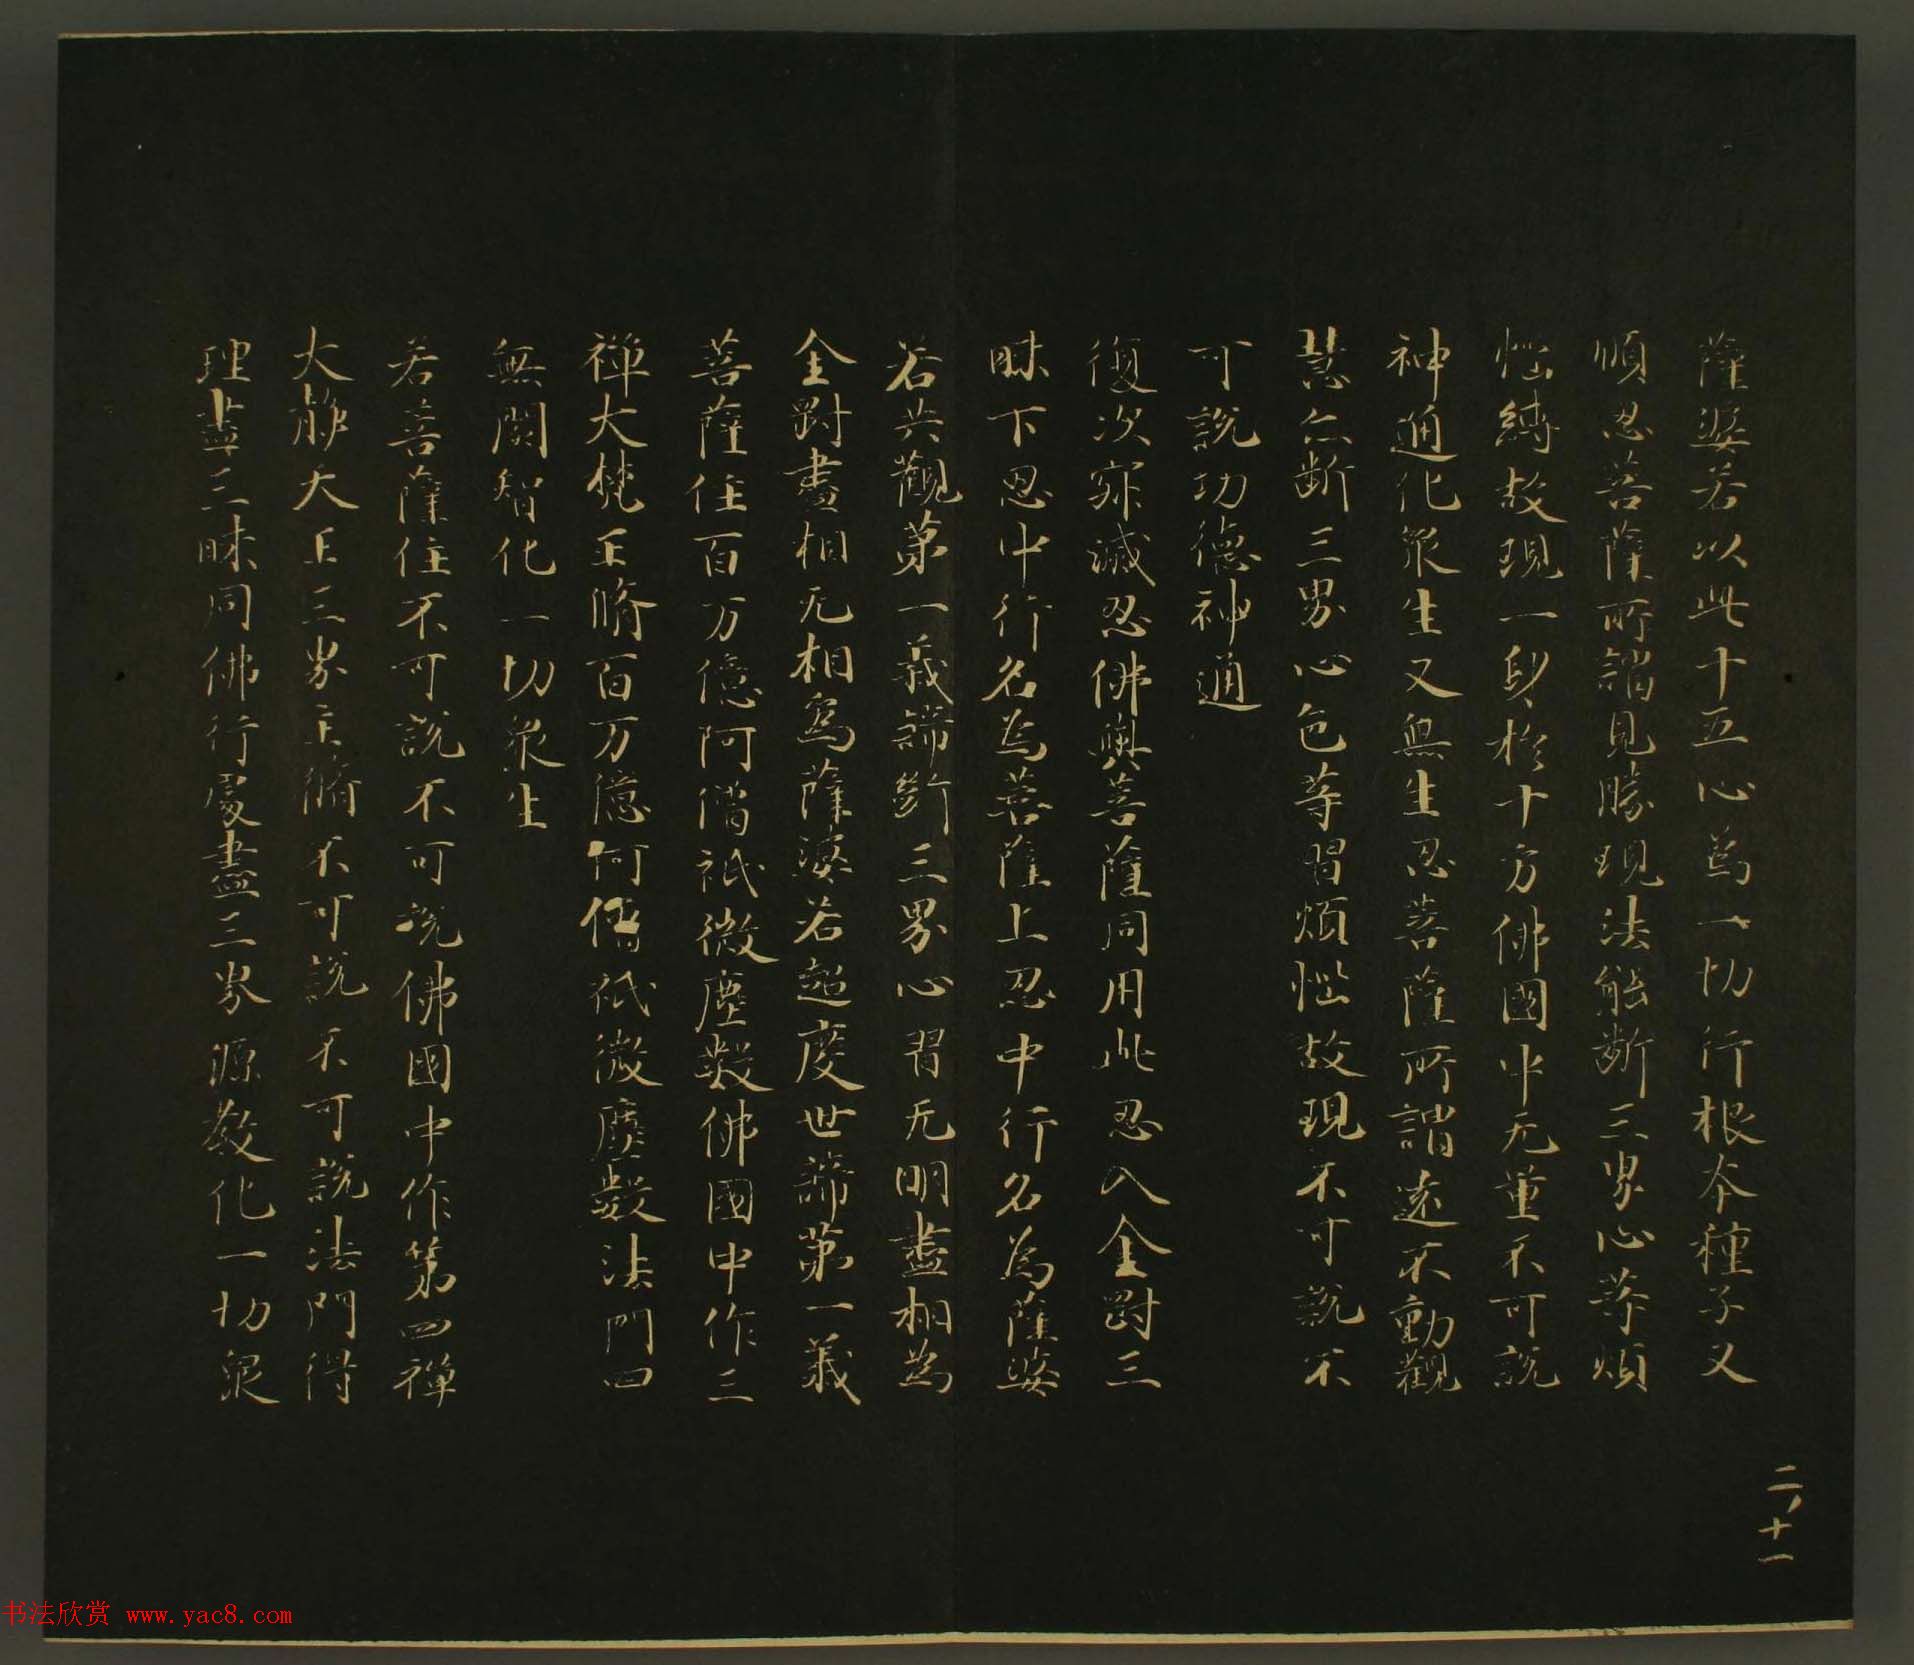 薩婆若以此十五心爲一切行根本種子又
順忍菩薩所謂見勝現法能斷三界心等煩
惱縛故現一身於十方佛國中无量不可說
神通化衆生又無生忍菩薩所謂遠不動觀
慧亦斷三界心色等習煩惱故現不可說不
可說功德神通
復次寂滅忍佛與菩薩同用此忍入金對三
昧下忍中行名為菩薩上忍中行名為薩婆
若共觀第一義諦斷三界心習无明盡相為
金對盡相无相爲薩婆若超度世諦第一義
菩薩住百万億阿僧祇微塵數佛國中作三
禪大梵王脩百万億阿僧祇微塵數法門四
無閡智化一切衆生
若菩薩住不可說不可說佛國中作第四禪
大靜天王三界主脩不可說不可說法門得
理盡三昧同佛行處盡三界源教化一切衆
二、十一
书法欣赏 www.yac8.com